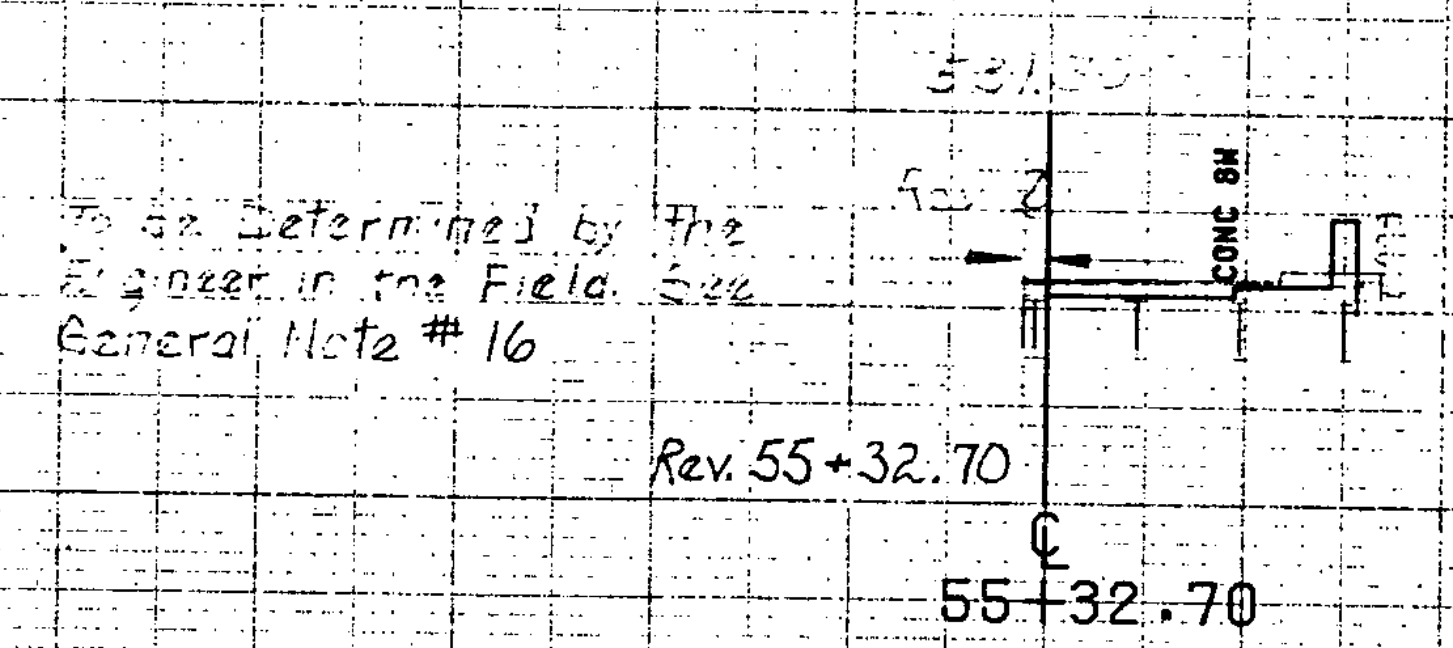 To be Determined by the
Engineer in the Field. See
General Note # 16
CONC 8W
Rev. 55+32.70
CL
55+32.70